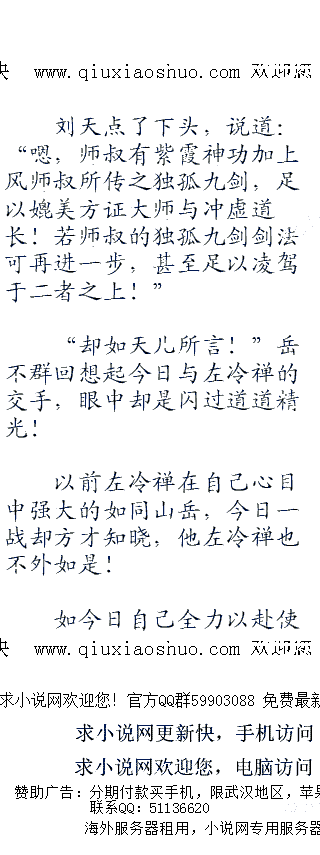 快 www.qiuxiaoshuo.com 欢迎您
刘天点了下头，说道：
“嗯，师叔有紫霞神功加上
风师叔所传之独孤九剑，足
以媲美方证大师与冲虚道
长！若师叔的独孤九剑剑法
可再进一步，甚至足以凌驾
于二者之上！”
“却如天儿所言！”岳
不群回想起今日与左冷禅的
交手，眼中却是闪过道道精
光！
以前左冷禅在自己心目
中强大的如同山岳，今日一
战却方才知晓，他左冷禅也
不外如是！
如今日自己全力以赴使
快 www.qiuxiaoshuo.com 欢迎您
求小说网欢迎您！官方QQ群59903088 免费最新
求小说网更新快，手机访问
求小说网欢迎您，电脑访问
赞助广告：分期付款买手机，限武汉地区，苹果
联系QQ：51136620
海外服务器租用，小说网专用服务器